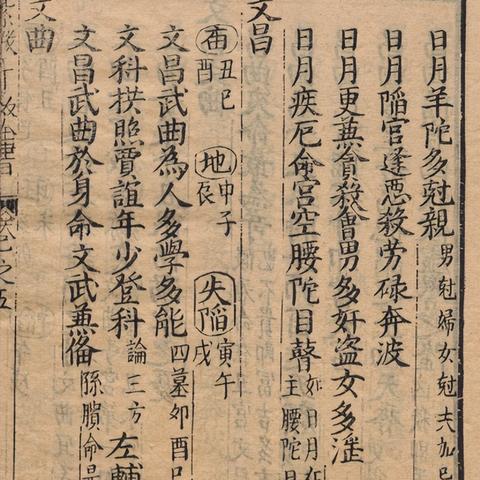 日月羊陀多尅親 男尅婦女尅夫加巳
日月陷官逢惡殺劳碌奔波
日月更兼會殺會男多奸盗女多淫
日月疾厄命宮空腰陀目瞽 如日月在 主腰陀目
文昌
庿 丑巳酉 地 申子辰 失陷 寅午戌
文昌武曲為人多學多能 四墓卯酉巳
文科拱照賈誼年少登科 論三方 左輔
文昌武曲於身命文武兼俻 孫臏命是
文曲
之五